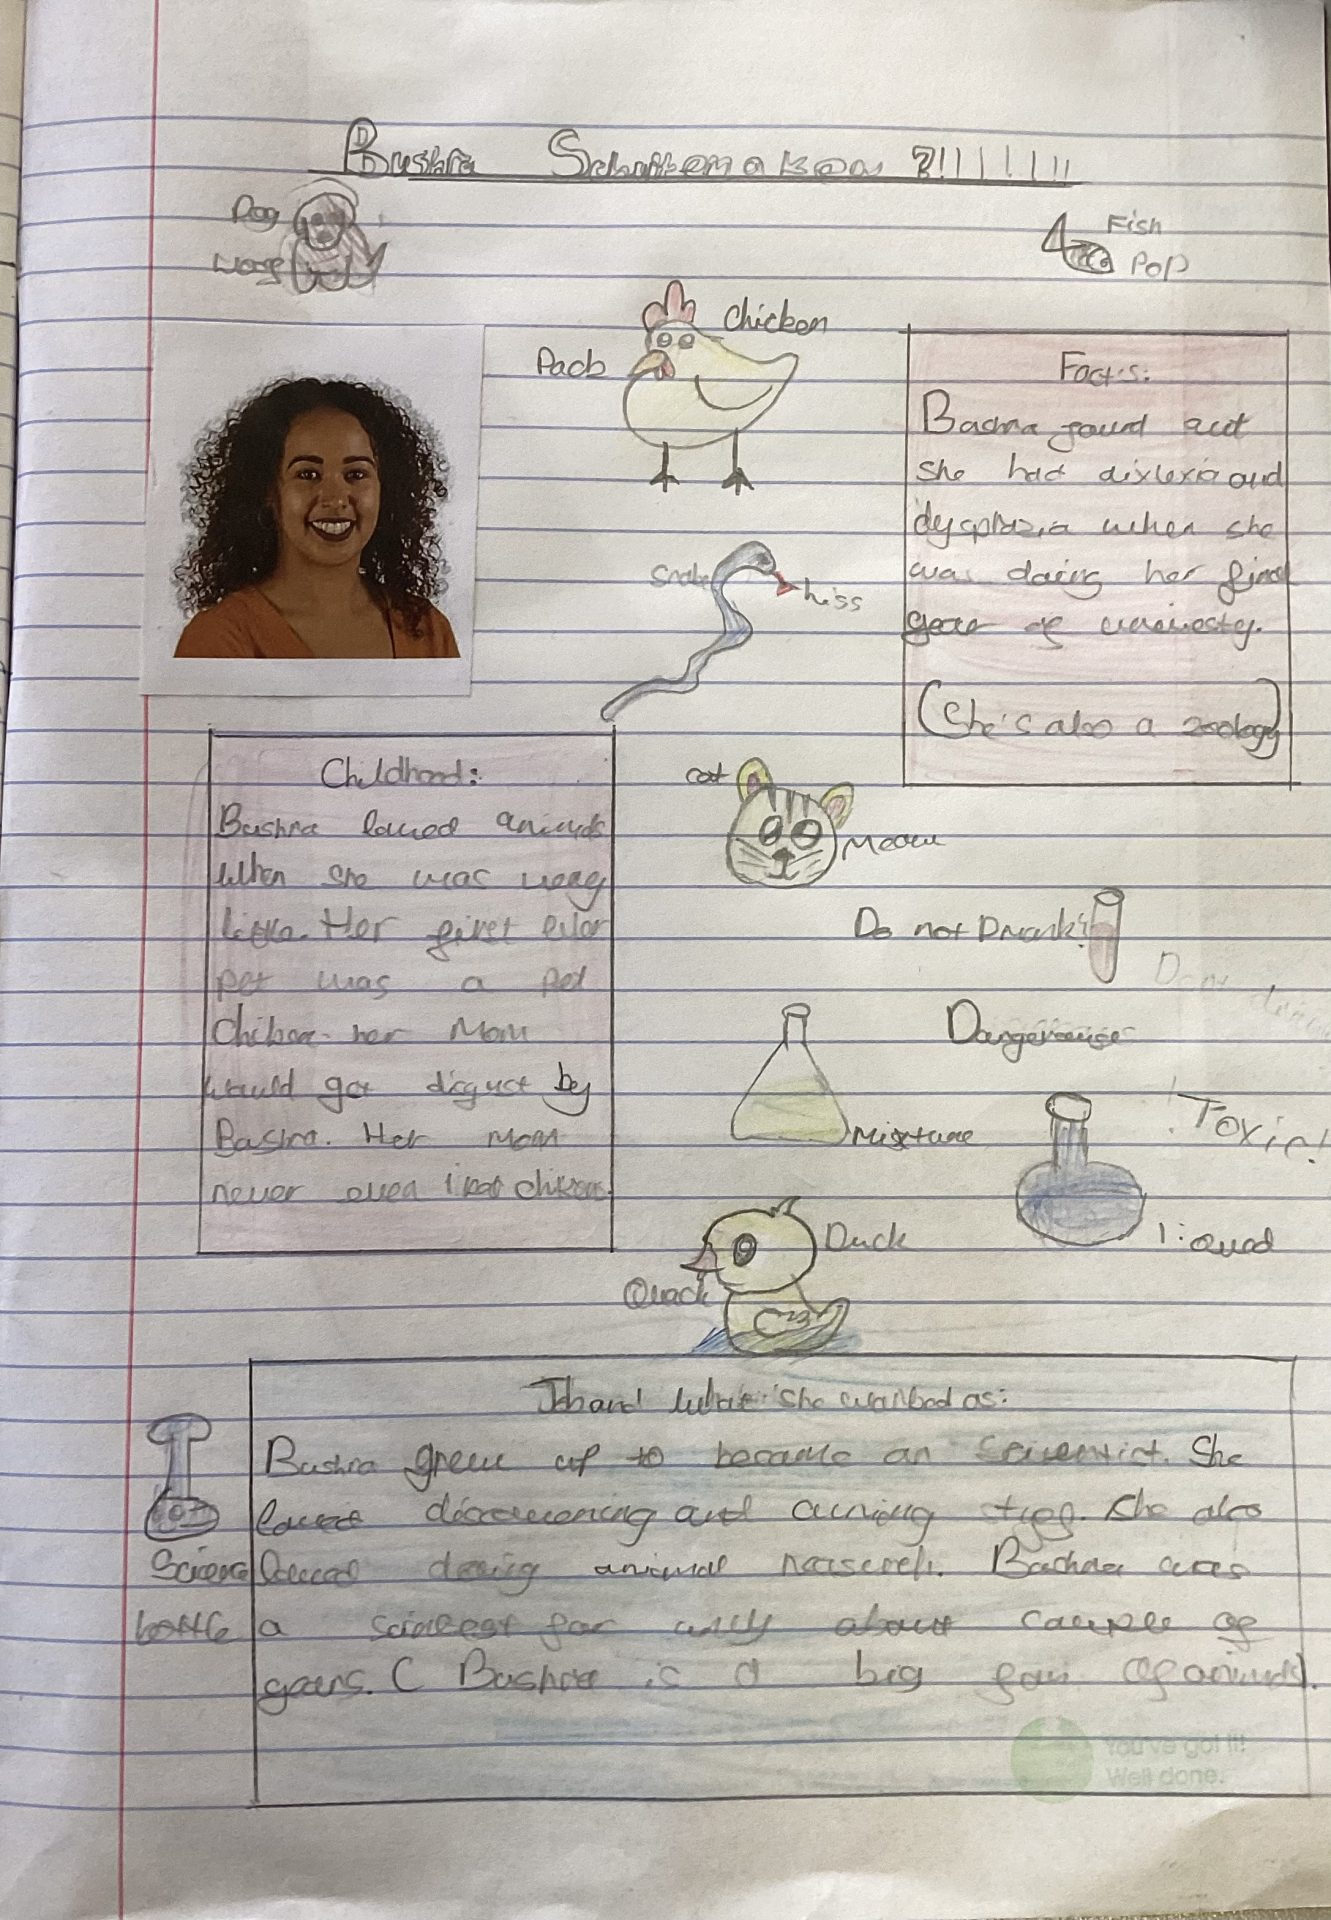 Bushra Schuitemaker ?!!!!!!!
Dog
Woof
Fish
Pop
Chicken
Pack
Facts:
Bashra found out
she had dixlexia and
dysplazia when she
was doing her final
year of
(She's also a zoology)
Snake
hiss
cat
Meow
Childhood:
Bushra loved animals
When she was very
little. Her first ever
pet was a pet
her Mom
would get disgust by
Bashra. Her mom
never even
Do not Drank!
Dangerouse
Mixture
Toxic!
liquad
Duck
Quack
Job and what she worked as:
Bushra grew up to became an Scientist. She
loved and stuff. She also
loved doing animal Bashra was
a for only about couple of
years. ( Bushra is a big fan of animals).
Science
bottle
You've got it!
Well done.